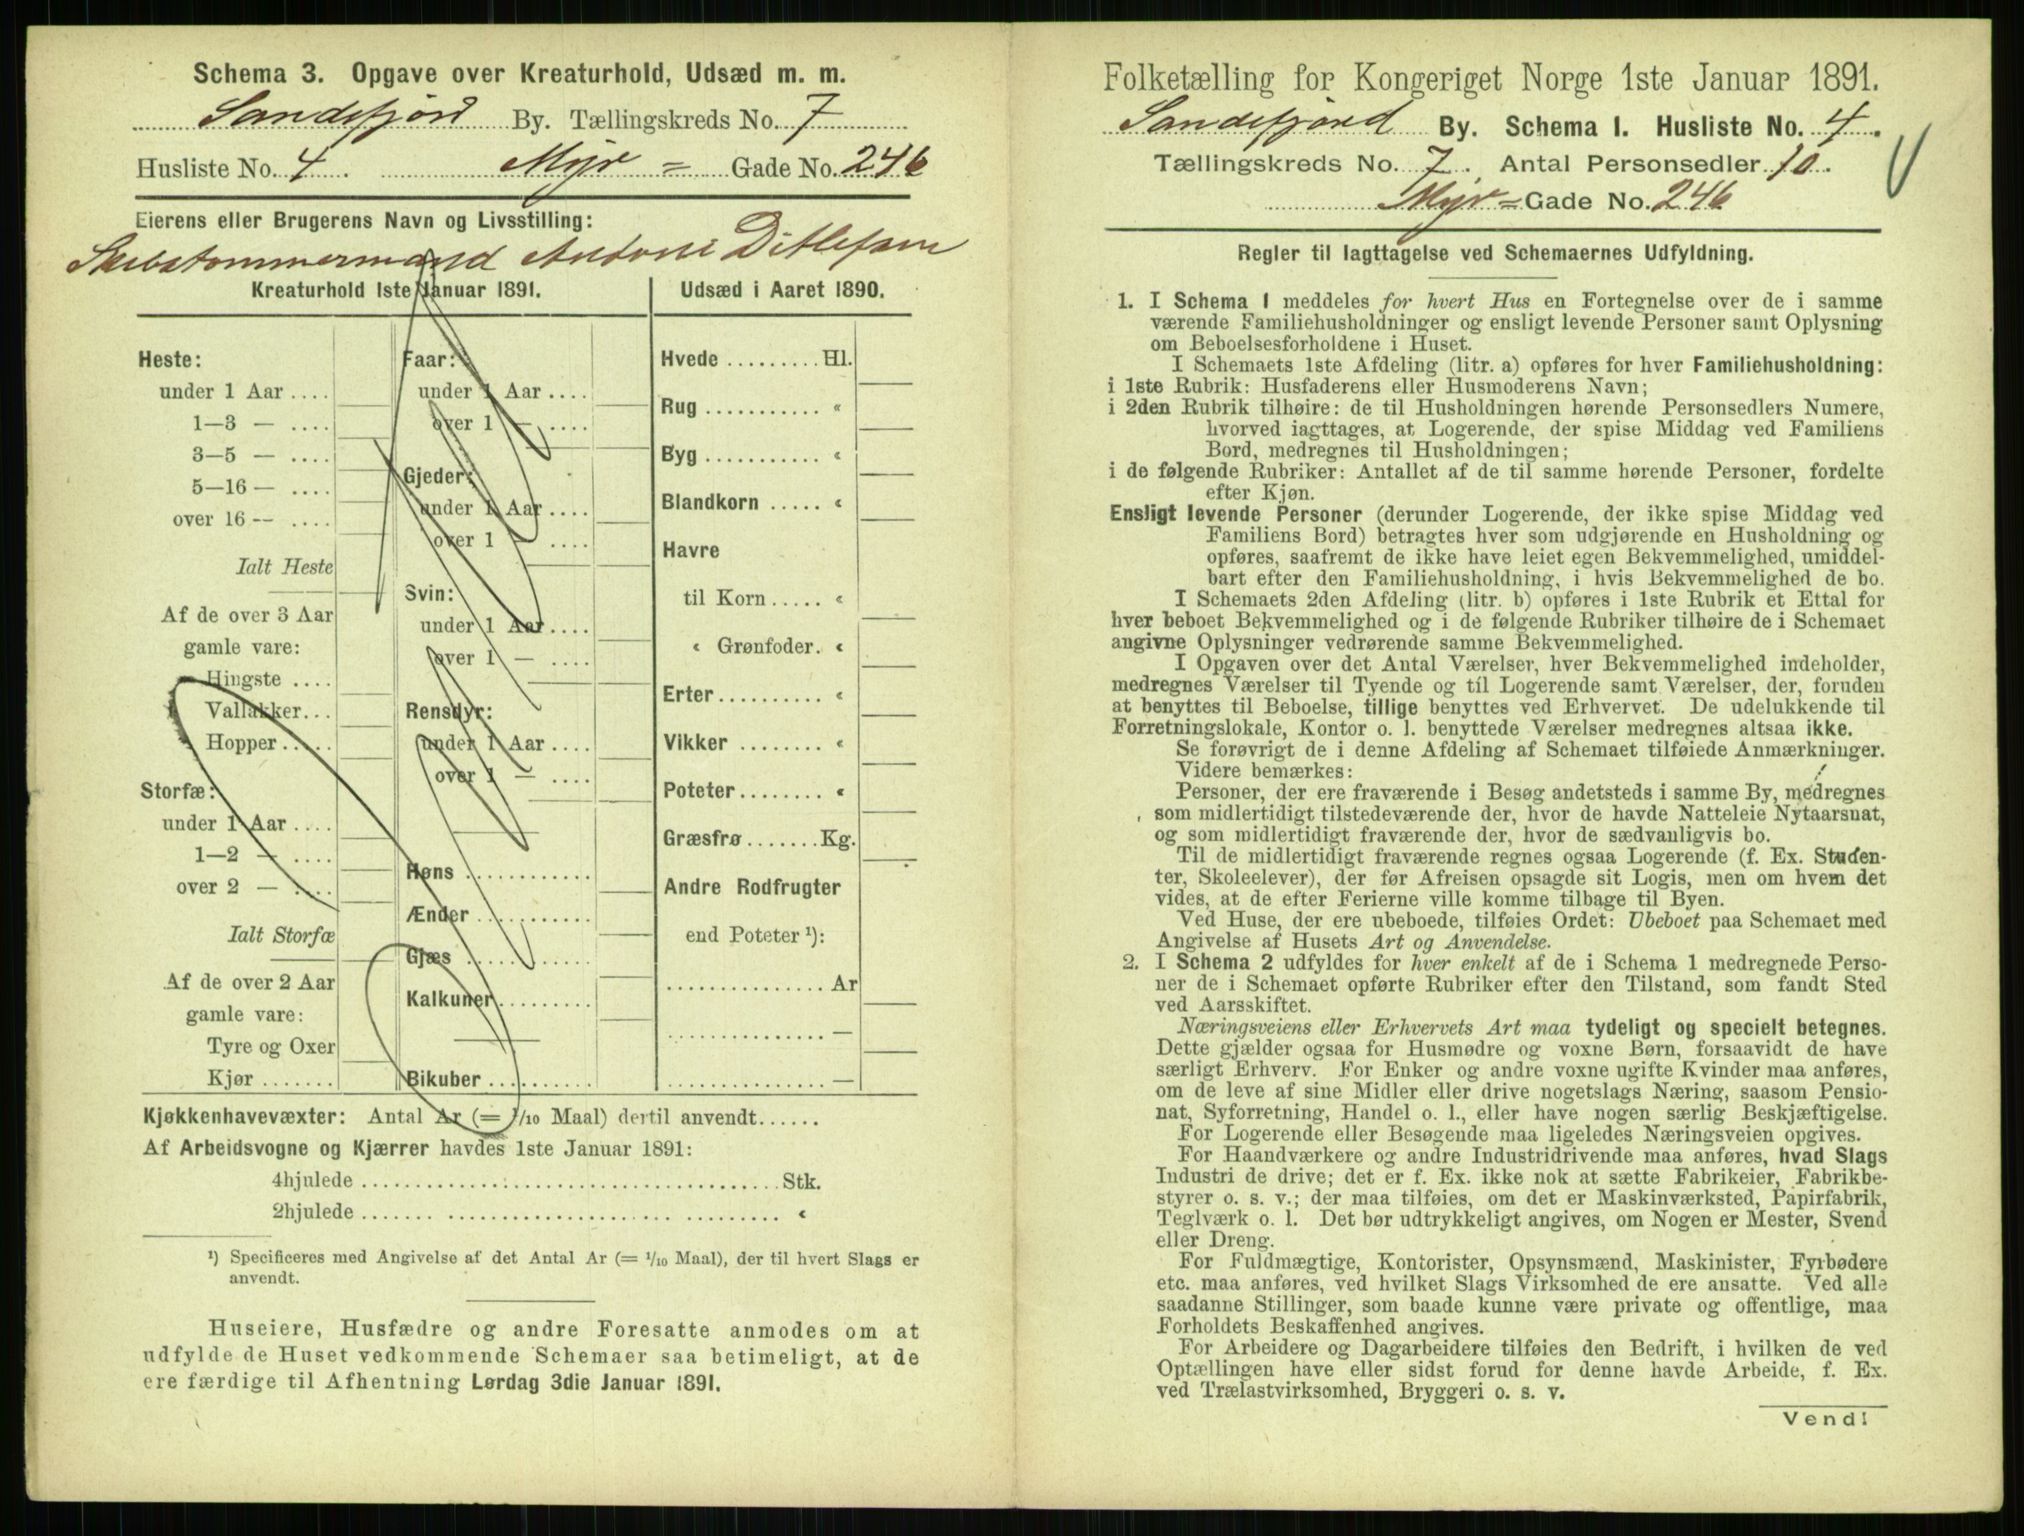 Schema 3. Opgave over Kreaturhold, Udsæd m. m.
Sandefjord By. Tællingskreds No. 7
Husliste No. 4. Myr = Gade No. 246
Eierens eller Brugerens Navn og Livsstilling:
Skibstømmermand Ditlefsen
Kreaturhold 1ste Januar 1891.
Heste:
under 1 Aar ....
1—3 — ....
3—5 — ....
5—16 — ....
over 16 -- ....
Ialt Heste
Af de over 3 Aar
gamle vare:
Hingste ....
Vallakker...
Hopper.....
Storfæ:
under 1 Aar ....
1—2 — ....
over 2 — ....
Ialt Storfæ
Af de over 2 Aar
gamle vare:
Tyre og Oxer
Kjør.......
Faar:
under 1 Aar ....
over 1 — ....
Gjeder:
under 1 Aar ....
over 1 — ....
Svin:
under 1 Aar ....
over 1 — ....
Rensdyr:
under 1 Aar ....
over 1 — ....
Høns ............
Ænder ...........
Gjæs ............
Kalkuner.........
Bikuber ..........
Udsæd i Aaret 1890.
Hvede .........Hl.
Rug ........... «
Byg ........... «
Blandkorn ..... «
Havre
til Korn..... «
« Grønfoder. «
Erter.......... «
Vikker ........ «
Poteter........ «
Græsfrø .......Kg.
Andre Rodfrugter
end Poteter ¹):
............... Ar
............... —
............... —
Kjøkkenhavevæxter: Antal Ar (= 1/10 Maal) dertil anvendt......
Af Arbeidsvogne og Kjærrer havdes 1ste Januar 1891:
4hjulede ........................................ Stk.
2hjulede ........................................ «
¹) Specificeres med Angivelse af det Antal Ar (= 1/10 Maal), der til hvert Slags er
anvendt.
Huseiere, Husfædre og andre Foresatte anmodes om at
udfylde de Huset vedkommende Schemaer saa betimeligt, at de
ere færdige til Afhentning Lørdag 3die Januar 1891.
Folketælling for Kongeriget Norge 1ste Januar 1891.
Sandefjord By. Schema 1. Husliste No. 4.
Tællingskreds No. 7. Antal Personsedler 10.
Myr = Gade No. 246
Regler til Iagttagelse ved Schemaernes Udfyldning.
1. I Schema 1 meddeles for hvert Hus en Fortegnelse over de i samme
værende Familiehusholdninger og ensligt levende Personer samt Oplysning
om Beboelsesforholdene i Huset.
I Schemaets 1ste Afdeling (litr. a) opføres for hver Familiehusholdning:
i 1ste Rubrik: Husfaderens eller Husmoderens Navn;
i 2den Rubrik tilhøire: de til Husholdningen hørende Personsedlers Numere,
hvorved iagttages, at Logerende, der spise Middag ved Familiens
Bord, medregnes til Husholdningen;
i de følgende Rubriker: Antallet af de til samme hørende Personer, fordelte
efter Kjøn.
Ensligt levende Personer (derunder Logerende, der ikke spise Middag ved
Familiens Bord) betragtes hver som udgjørende en Husholdning og
opføres, saafremt de ikke have leiet egen Bekvemmelighed, umiddel-
bart efter den Familiehusholdning, i hvis Bekvemmelighed de bo.
I Schemaets 2den Afdeling (litr. b) opføres i 1ste Rubrik et Ettal for
hver beboet Bekvemmelighed og i de følgende Rubriker tilhøire de i Schemaet
angivne Oplysninger vedrørende samme Bekvemmelighed.
I Opgaven over det Antal Værelser, hver Bekvemmelighed indeholder,
medregnes Værelser til Tyende og til Logerende samt Værelser, der, foruden
at benyttes til Beboelse, tillige benyttes ved Erhvervet. De udelukkende til
Forretningslokale, Kontor o. l. benyttede Værelser medregnes altsaa ikke.
Se forøvrigt de i denne Afdeling af Schemaet tilføiede Anmærkninger.
Videre bemærkes:
Personer, der ere fraværende i Besøg andetsteds i samme By, medregnes
som midlertidigt tilstedeværende der, hvor de havde Natteleie Nytaarsnat,
og som midlertidigt fraværende der, hvor de sædvanligvis bo.
Til de midlertidigt fraværende regnes ogsaa Logerende (f. Ex. Studen-
ter, Skoleelever), der før Afreisen opsagde sit Logis, men om hvem det
vides, at de efter Ferierne ville komme tilbage til Byen.
Ved Huse, der ere ubeboede, tilføies Ordet: Ubeboet paa Schemaet med
Angivelse af Husets Art og Anvendelse.
2. I Schema 2 udfyldes for hver enkelt af de i Schema 1 medregnede Perso-
ner de i Schemaet opførte Rubriker efter den Tilstand, som fandt Sted
ved Aarsskiftet.
Næringsveiens eller Erhvervets Art maa tydeligt og specielt betegnes.
Dette gjælder ogsaa for Husmødre og voxne Børn, forsaavidt de have
særligt Erhverv. For Enker og andre voxne ugifte Kvinder maa anføres,
om de leve af sine Midler eller drive nogetslags Næring, saasom Pensio-
nat, Syforretning, Handel o. l., eller have nogen særlig Beskjæftigelse.
For Logerende eller Besøgende maa ligeledes Næringsveien opgives.
For Haandværkere og andre Industridrivende maa anføres, hvad Slags
Industri de drive; det er f. Ex. ikke nok at sætte Fabrikeier, Fabrikbe-
styrer o. s. v.; der maa tilføies, om det er Maskinværksted, Papirfabrik,
Teglværk o. l. Det bør udtrykkeligt angives, om Nogen er Mester, Svend
eller Dreng.
For Fuldmægtige, Kontorister, Opsynsmænd, Maskinister, Fyrbødere
etc. maa anføres, ved hvilket Slags Virksomhed de ere ansatte. Ved alle
saadanne Stillinger, som baade kunne være private og offentlige, maa
Forholdets Beskaffenhed angives.
For Arbeidere og Dagarbeidere tilføies den Bedrift, i hvilken de ved
Optællingen have eller sidst forud for denne havde Arbeide, f. Ex.
ved Trælastvirksomhed, Bryggeri o. s. v.
Vend!